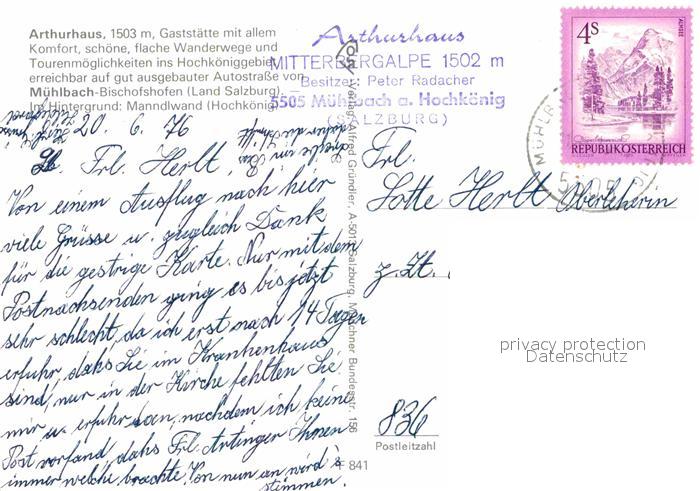 Arthurhaus, 1503 m, Gaststätte mit allem
Komfort, schöne, flache Wanderwege und
Tourenmöglichkeiten ins Hochköniggebiet
erreichbar auf gut ausgebauter Autostraße von
Mühlbach-Bischofshofen (Land Salzburg).
Im Hintergrund: Manndlwand (Hochkönig)
Arthurhaus
MITTERBERGALPE 1502 m
Besitzer: Peter Radacher
5505 Mühlbach a. Hochkönig
(SALZBURG)
4S
ALMSEE
REPUBLIK ÖSTERREICH
MÜHLB
20. 6. 76
Lb. Frl. Herlt,
Von einem Ausflug nach hier
viele Grüsse u. zugleich Dank
für die gestrige Karte. Nur mit dem
Postnachsenden ging es bis jetzt
sehr schlecht, da ich erst nach 14 Tagen
erfuhr, dahs Sie im Krankenhaus
sind, nur in der Kirche fehlten Sie
mir u. erfuhr, nachdem ich keine
Post vorfand, dahs Frl. Artinger Ihnen
immer welche brachte. Von nun an wird's
stimmen.
Verlag Alfred Gründler, A-501 Salzburg, Münchner Bundesstr. 156
F 841
Frl.
Lotte Herlt Oberlehrerin
z. Zt.
836
Postleitzahl
privacy protection
Datenschutz